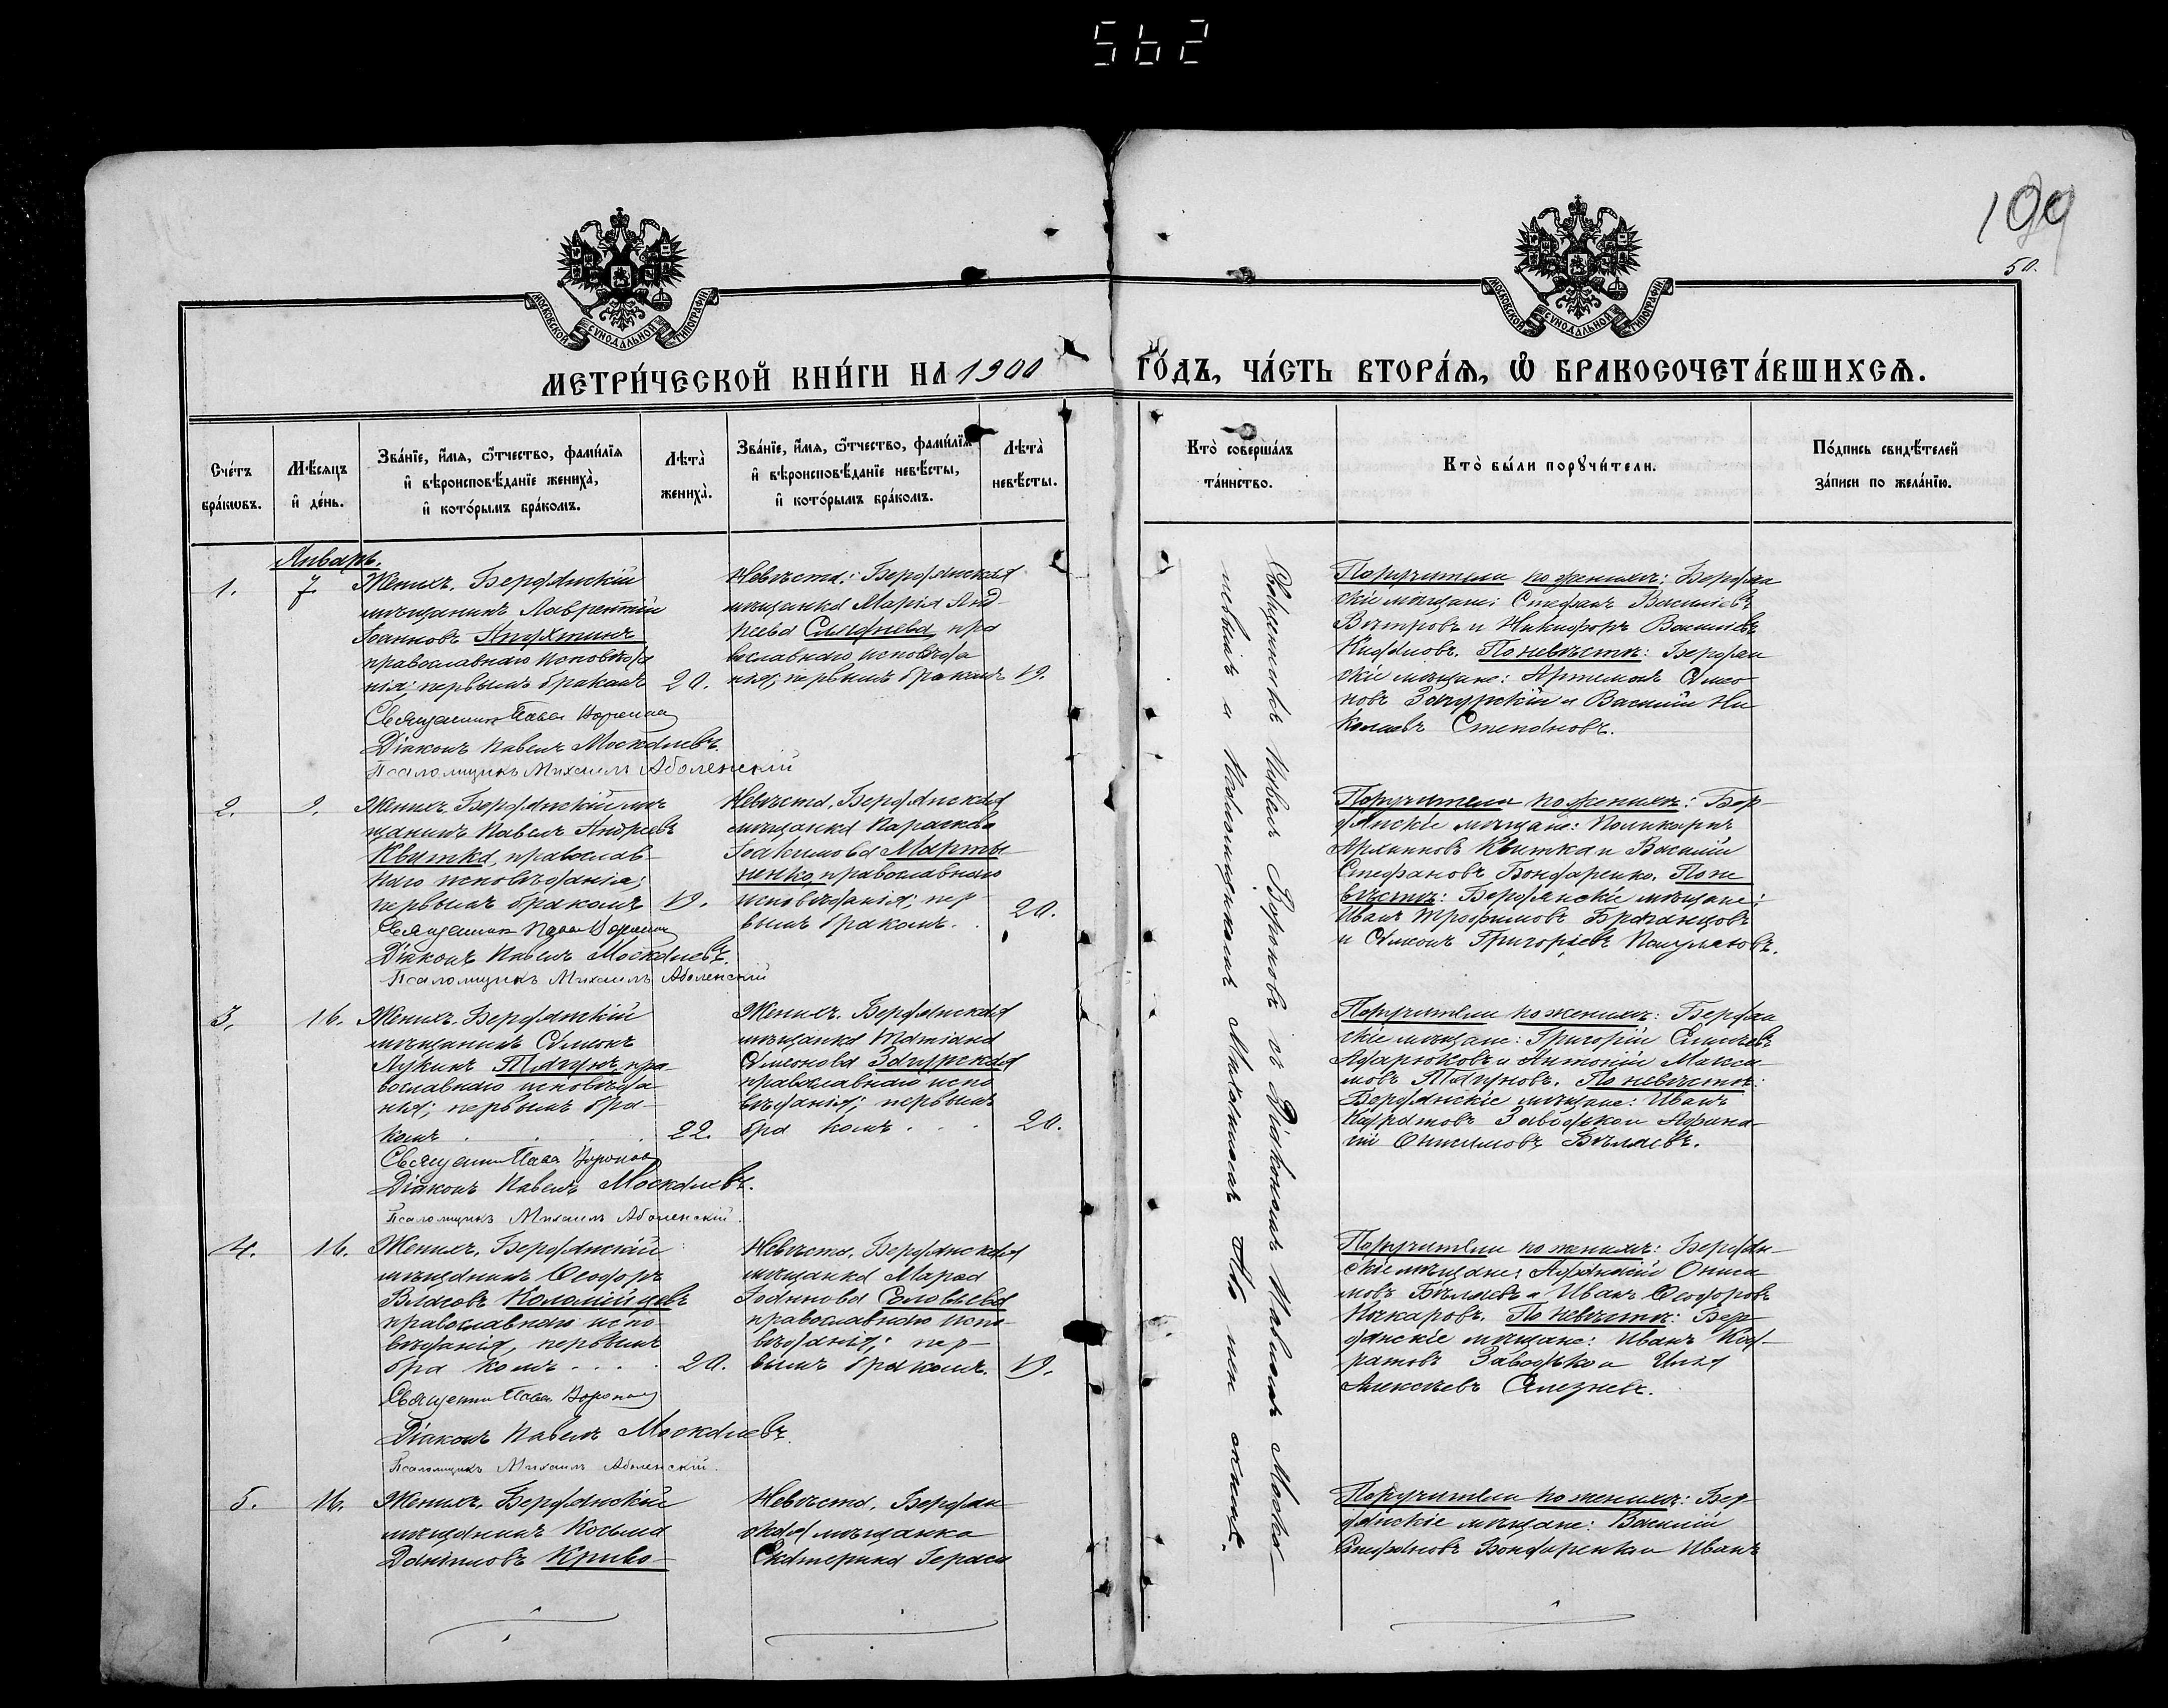 562
199
50.
МОСКОВСКОЙ СѴНОДАЛЬНОЙ ТИПОГРАФІИ
МОСКОВСКОЙ СѴНОДАЛЬНОЙ ТИПОГРАФІИ
МЕТРИ́ЧЕСКОЙ КНИ́ГИ НА 1900
ГО́ДЪ, ЧА́СТЬ ВТОРА́Ѧ, Ѽ БРАКОСОЧЕТА́ВШИХСѦ.
Сче́тъ
бра́кѡвъ.
Мѣ́сяцъ
и҆ де́нь.
Зва́нїе, и҆́мѧ, ѻ҆́тчество, фами́лїѧ
и҆ вѣроисповѣ́данїе жениха̀,
и҆ кото́рымъ бра́комъ.
Лѣта̀
жениха̀.
Зва́нїе, и҆́мѧ, ѻ҆́тчество, фами́лїѧ
и҆ вѣроисповѣ́данїе невѣ́сты,
и҆ кото́рымъ бра́комъ.
Лѣта̀
невѣ́сты.
Кто̀ соверша́лъ
та́инство.
Кто̀ бы́ли порꙋчи́тели.
По́дпись свидѣ́телей
за́писи по жела́нїю.
Январь.
1.
7.
Женихъ. Бердянскій
мѣщанинъ Лаврентій
православнаго исповѣда
нія; первымъ бракомъ
20.
Священник Павел Воронов
Діаконъ Павелъ Москалевъ.
Псаломщикъ Михаилъ Аболенскій
Невѣста: Бердянская
мѣщанка Марія Анд-
реева пра
вославнаго исповѣда
нія; первымъ бракомъ
19.
Поручители по женихѣ: Бердян
скіе мѣщане: Стефанъ Василіевъ
Вѣтровъ и Никифоръ Василіевъ
По невѣстѣ: Бердян
скіе мѣщане: Артемонъ Симо
новъ Загурскій и Василій Ни
колаевъ Степановъ.
Священникъ Павелъ Вороновъ съ Діакономъ Павломъ Моска-
левымъ и Псаломщикомъ Михаиломъ
2.
9.
Женихъ. Бердянскій мѣ
щанинъ Павелъ Андреевъ
Квитка, православ-
наго исповѣданія;
первымъ бракомъ
19.
Священник Павел Воронов
Діаконъ Павелъ Москалевъ.
Псаломщикъ Михаилъ Аболенскій
Невѣста, Бердянская
мѣщанка Параскева
Іоакимова Марты-
ненко, православнаго
исповѣданія; пер-
вымъ бракомъ.
20.
Поручители по женихѣ: Бер-
дянскіе мѣщане: Поликарпъ
Архиповъ Квитка и Василій
Стефановъ Бондаренко. По не
вѣстѣ: Бердянскіе мѣщане:
Иванъ Трофимовъ
и Симонъ Григоріевъ
3.
16.
Женихъ. Бердянскій
мѣщанинъ Симонъ
Лукинъ пра-
вославнаго исповѣда
нія; первымъ бра-
комъ
22.
Священник Павел Воронов
Діаконъ Павелъ Москалевъ.
Псаломщикъ Михаилъ Аболенскій.
Женихъ. Бердянская
мѣщанка Татіана
Симонова Загурская
православнаго испо
вѣданія; первымъ
бра комъ
20.
Поручители по женихѣ: Бердян
скіе мѣщане: Григорій
и Антоній Макси-
мовъ По невѣстѣ:
Бердянскіе мѣщане: Иванъ
Кодратовъ Заводька и Афана-
сій Онисимовъ Бѣляевъ.
4.
16.
Женихъ. Бердянскій
мѣщанинъ Ѳеодоръ
Власовъ Коломійцевъ
православнаго испо-
вѣданія, первымъ
бра комъ
20.
Священник Павел Воронов
Діаконъ Павелъ Москалевъ.
Псаломщикъ Михаилъ Аболенскій.
Невѣста, Бердянская
мѣщанка
Соловьева
православнаго испо-
вѣданія; пер-
вымъ бракомъ.
19.
Поручители по женихѣ: Бердян-
скіе мѣщане: Афанасій Ониси
мовъ Бѣляевъ и Иванъ Ѳеодоровъ
По невѣстѣ: Бер-
дянскіе мѣщане: Иванъ Код-
ратовъ Заводька и Илія
Алексѣевъ Селезневъ.
5.
16.
Женихъ. Бердянскій
мѣщанинъ Косьма
Даниловъ Криво-
Невѣста. Бердян-
ская мѣщанка
Екатерина Гераси
Поручители по женихѣ: Бер-
дянскіе мѣщане: Василій
Стефановъ Бондаренко и Иванъ